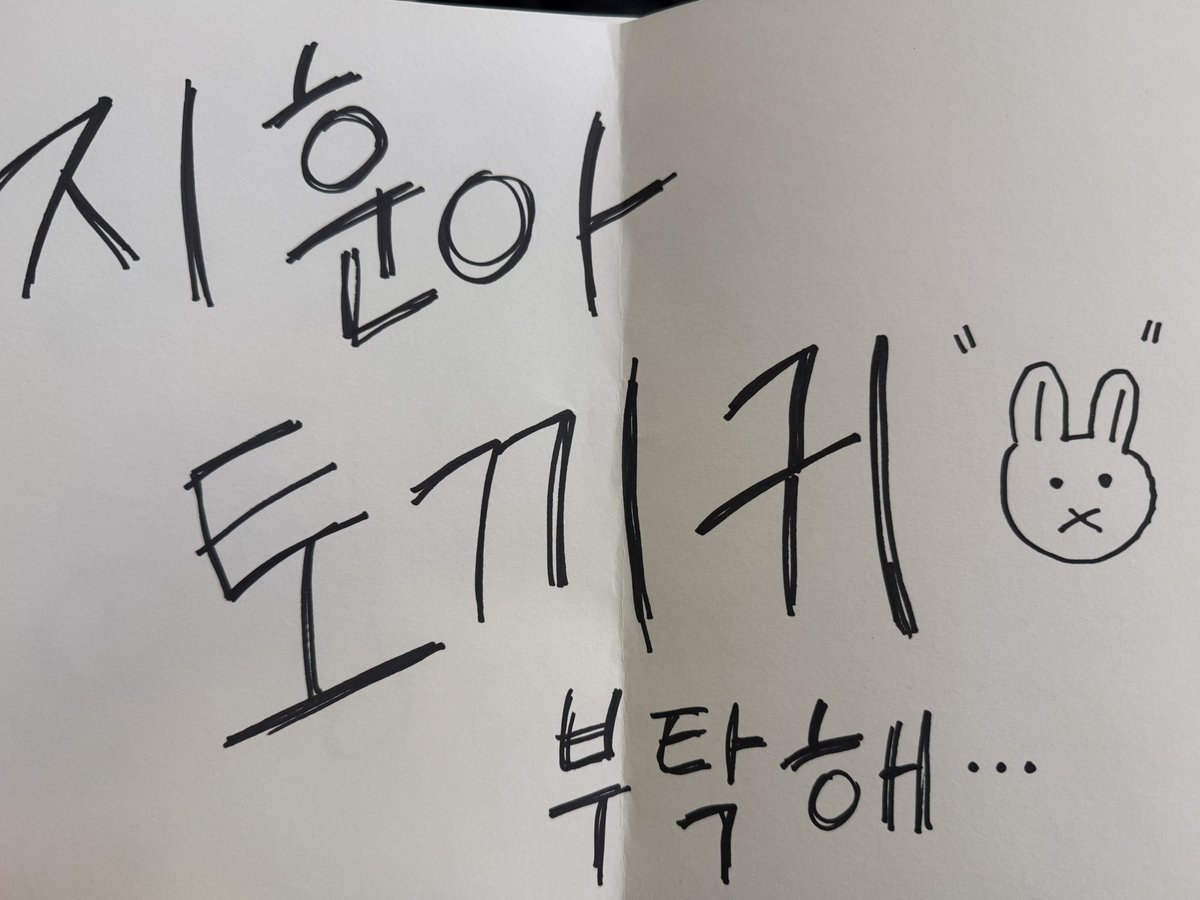 지훈아
토끼귀
부탁해...